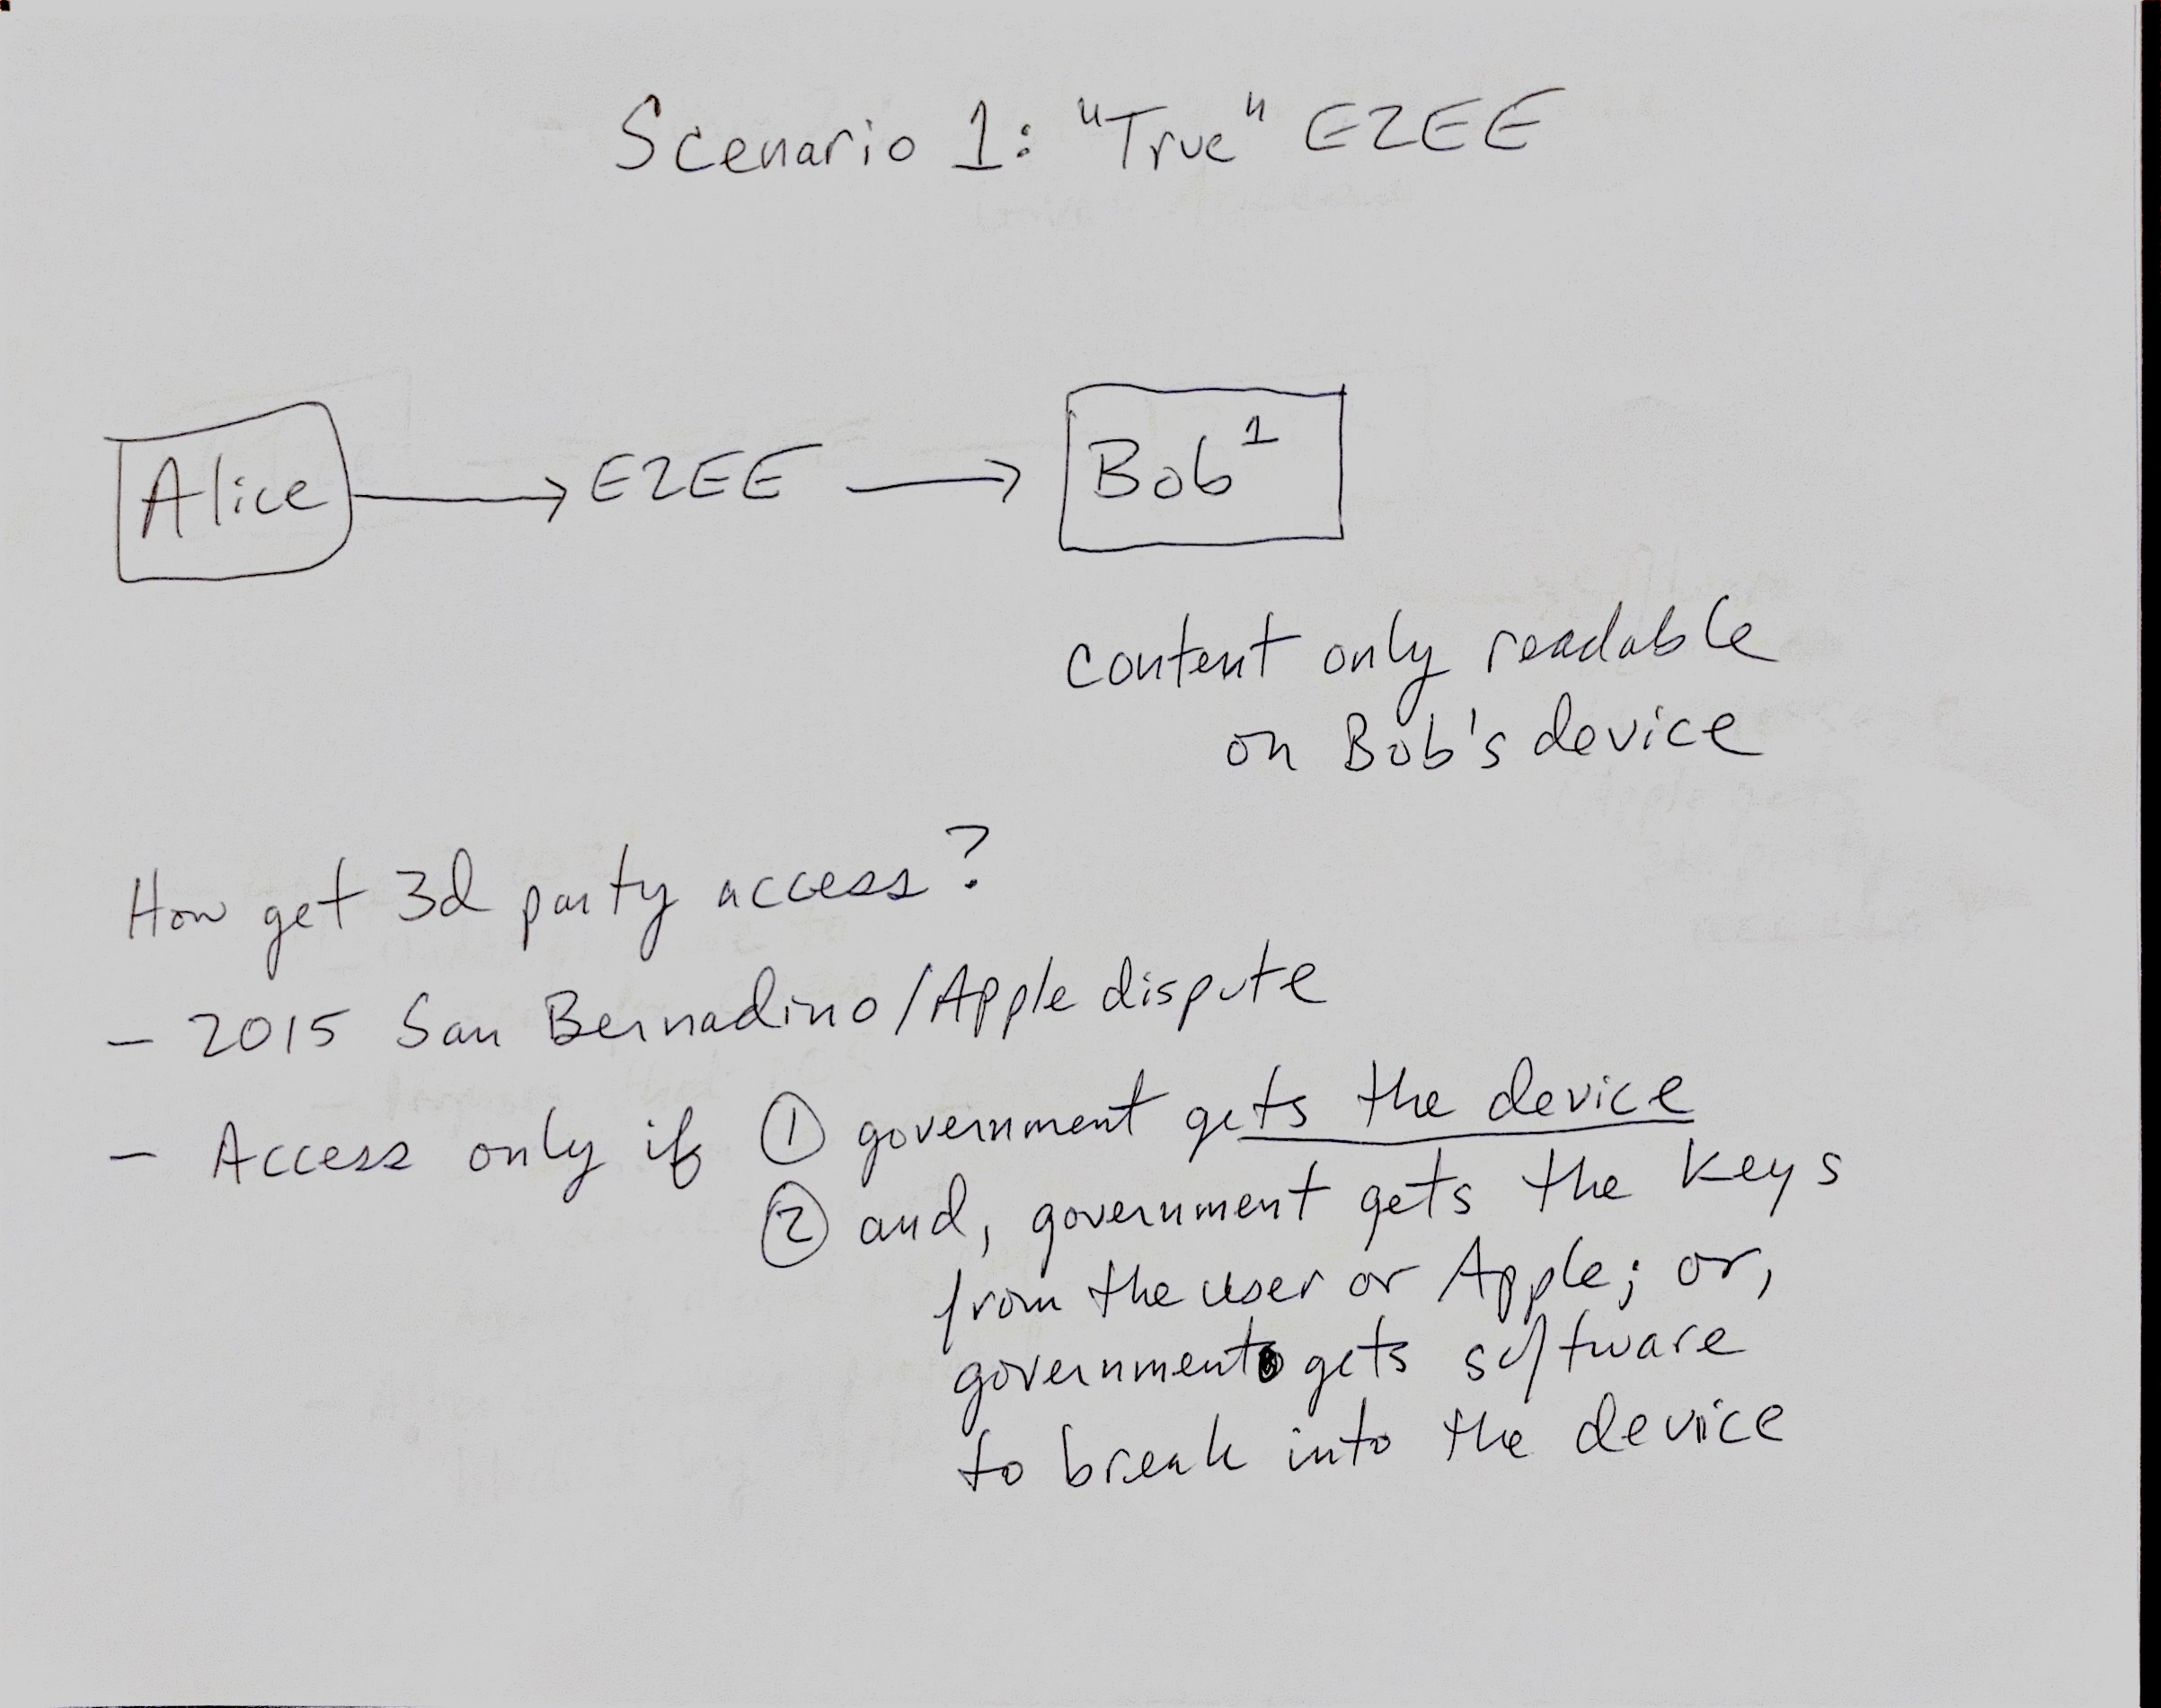 Scenario 1: "True" E2EE
Alice → E2EE → Bob¹
content only readable
on Bob's device
How get 3d party access?
– 2015 San Bernadino/Apple dispute
– Access only if ① government gets the device
② and, government gets the keys
from the user or Apple; or,
government gets software
to break into the device